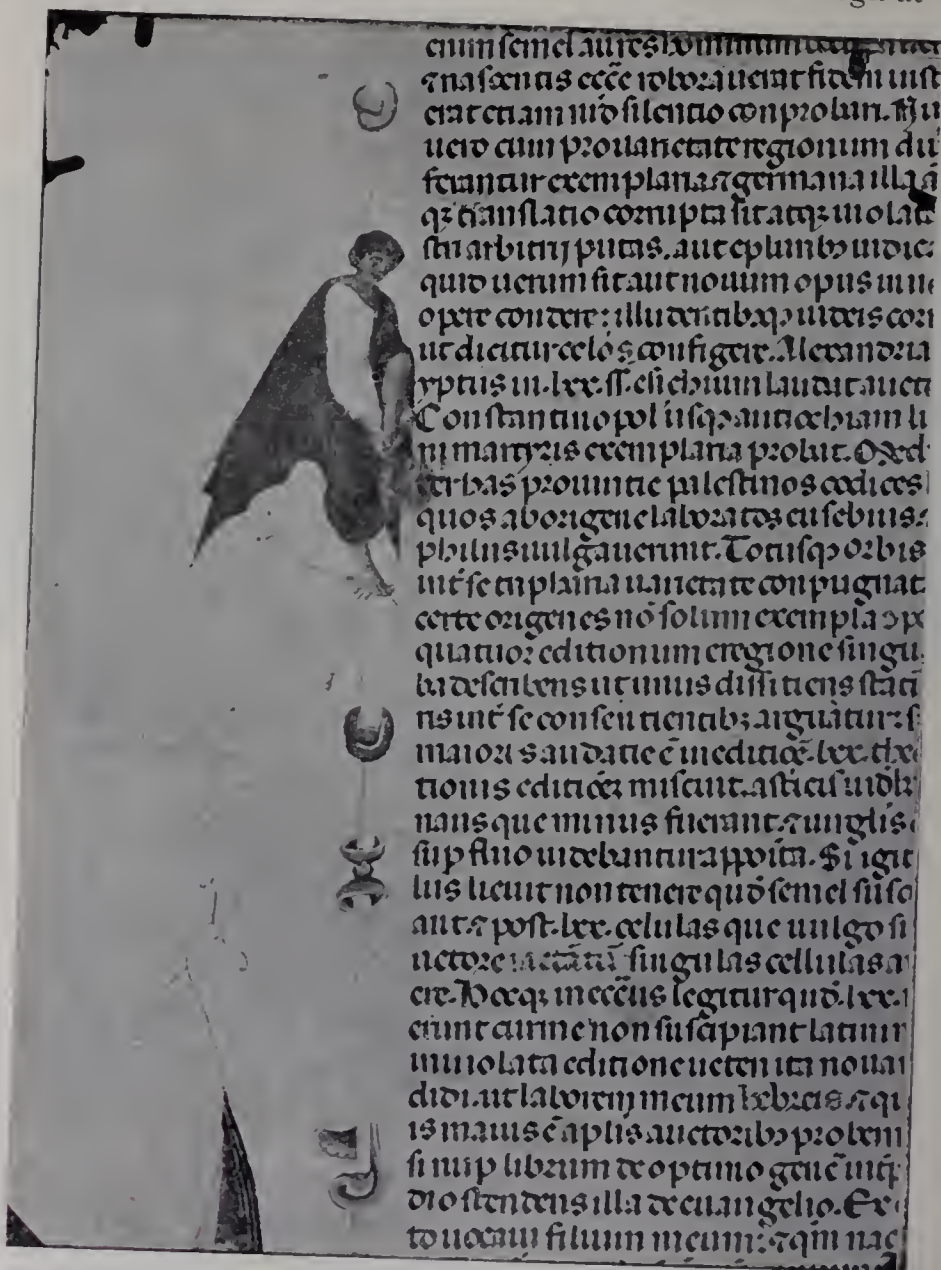 enim semel aures hominum
⁊ nascentis ecc̄e roborauerat fidem iust
erat etiam n̄rō silentio conprobari. Nu
uero cum pro uarietate regionum du
ferantur exemplaria ⁊ germana illa ā
qȝ translatio corrupta sit atqȝ uiolata
st̄ri arbitrij putas. aut e plurib; iudic
quid uerum sit aut nouum opus in ue
opere condere: illudentibqȝ iudeis corn
ut dicitur oculos configere. Alexandria
yptus in .lxx. ss. esichium laudat aucto
Constantinopol usqȝ antiochiam lu
ni martyris exemplaria probat. Med
ter has prouintie palestinos codices
quos ab origene laboratos eusebius ⁊
philus uulgauerunt. Totusqȝ orbis
int̄ se trip lana uarietate conpugnat
certe origenes nō solum exempla ɔpo
quatuor editionum e regione singu
ba describens ut unus dissitiens stati
ris int̄ se consentientibȝ arguatur: s
maioris audatie ē in editiōe .lxx. theo
tionis editiōeȝ miscuit. astîcis
nans que minus fuerant. ⁊ uirglis
sup fluo uidebantur appoīta. Si igit
luis licuit non tenere quod semel susce
ant. ⁊ post .lxx. celulas que uulgo si
uctore iactātū singulas cellulas a
ere. Hocqȝ in ecc̄iis legitur quod .lxx.
erunt cur me non suscipiant latini
inuiolata editione ueteri ita nouam
didi. ut laborem meum hebreis ⁊ qui
is maius ē aplis auctorib; probem
si nup librum de optimo gen̄e int̄p
di ostendens illa de euangelio. Ex
to uocaui filium meum: ⁊ qm̄ naz